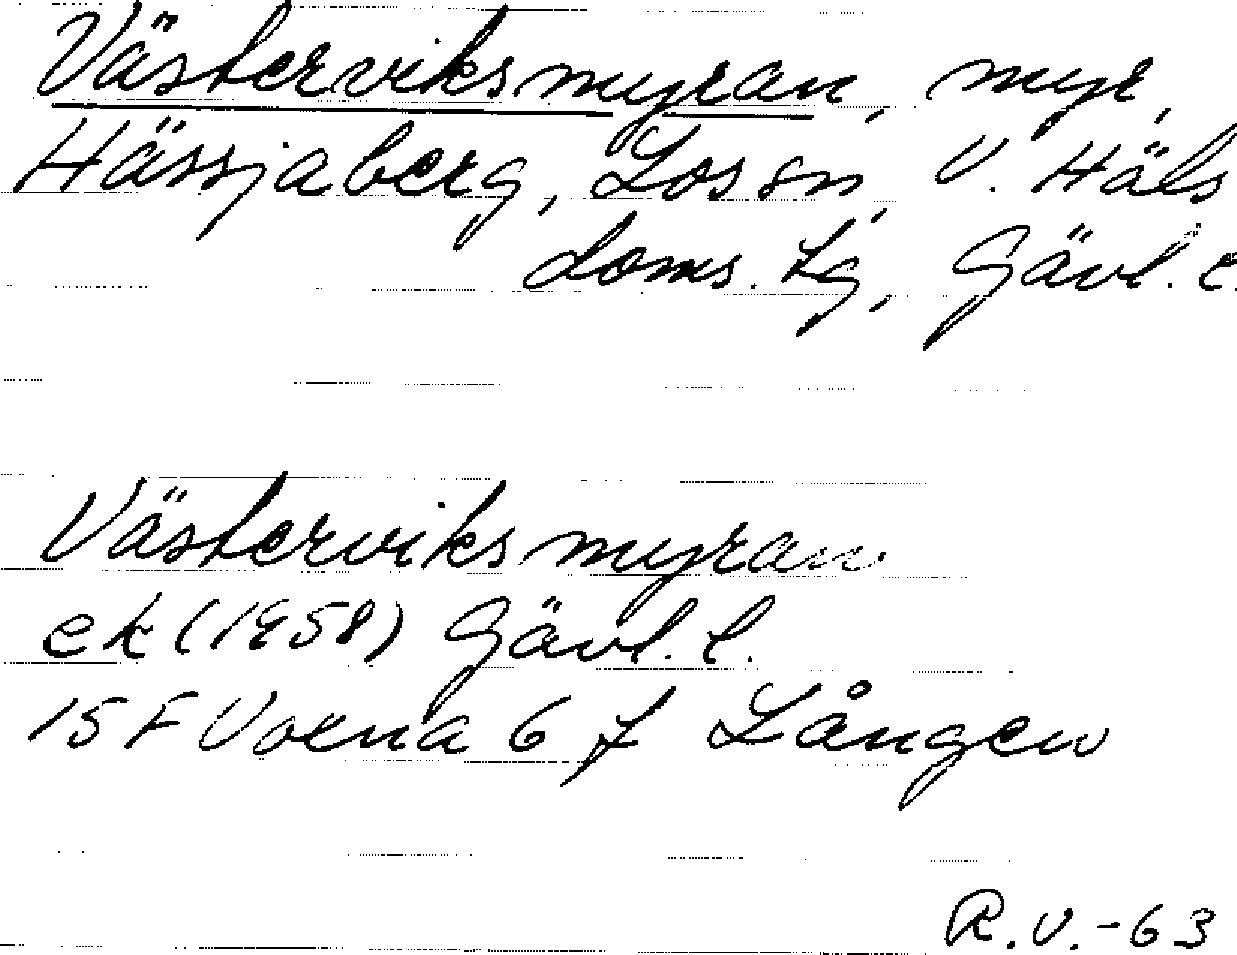 Västerviksmyran, myr,
Hässjaberg, Los sn, V. Häls
doms. tg, Gävl. l.
Västerviksmyran
ek (1958) Gävl. l.
15 F Voxna 6 f Lången
R.V.-63